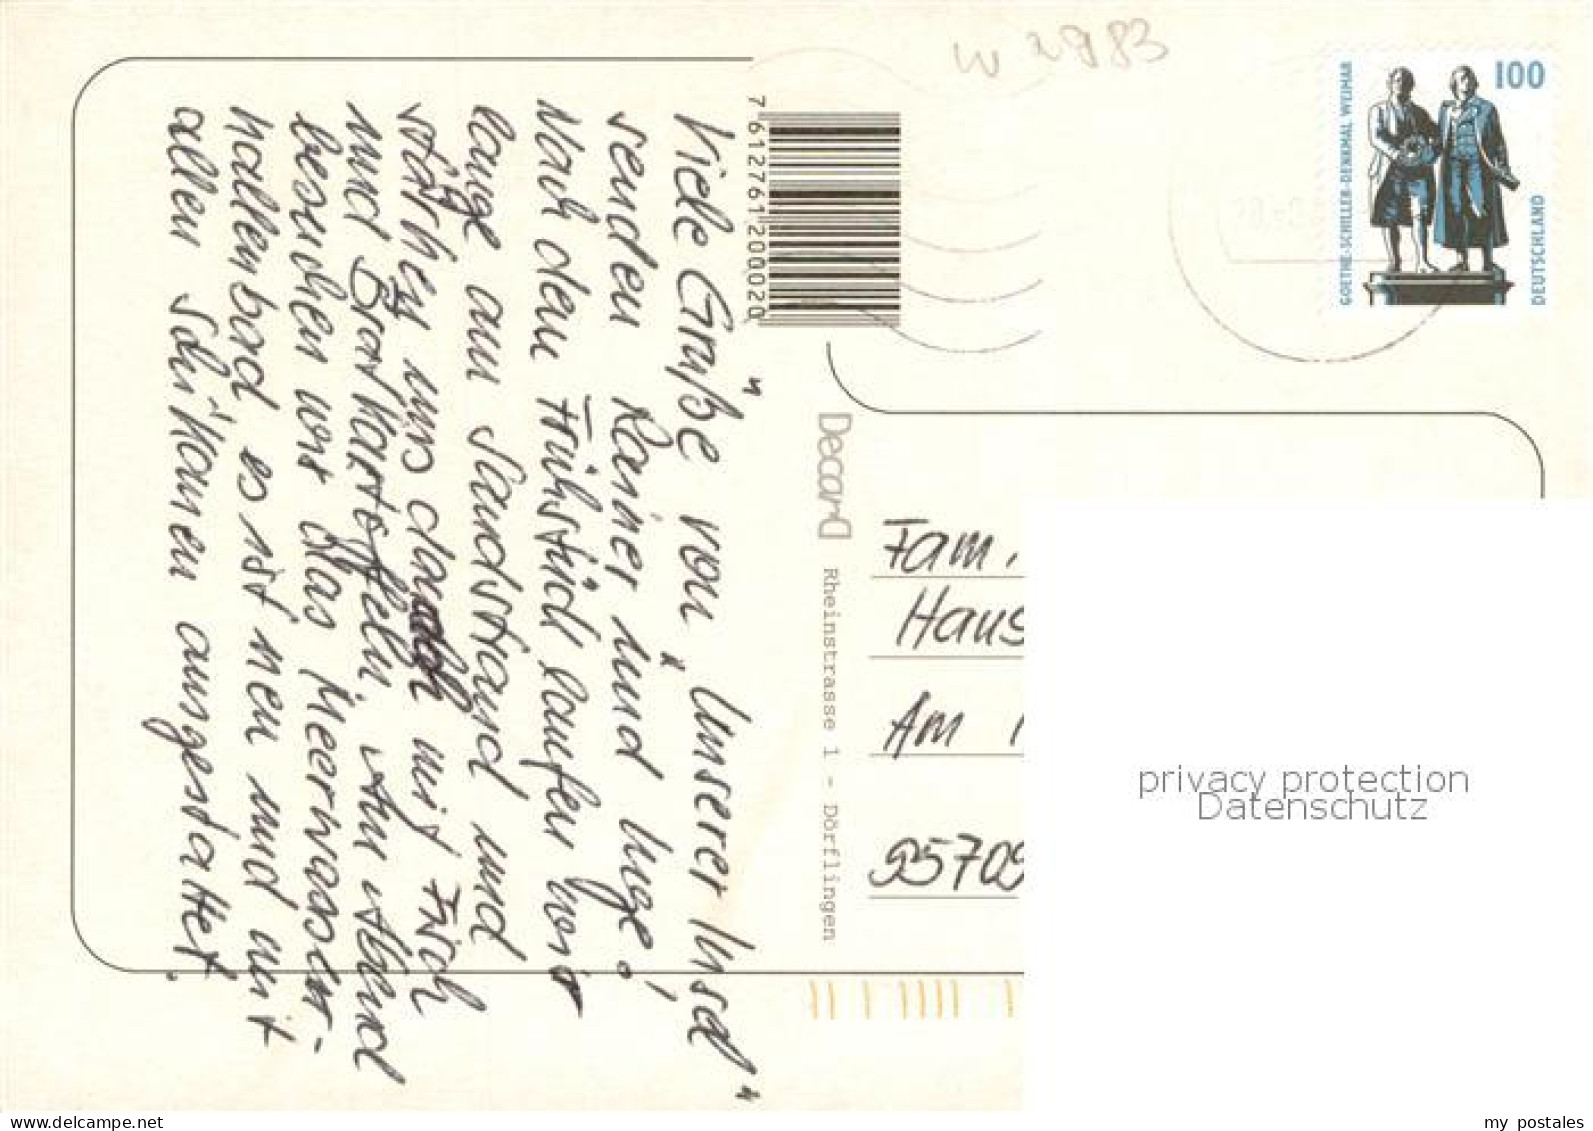 W 2983
100
GOETHE-SCHILLER-DENKMAL WEIMAR
DEUTSCHLAND
7 612761 200020
Viele Grüße von „Unserer Insel"
senden Rainer und Inge!
Nach dem Frühstück laufen wir
lange am Sandstrand und
stärken uns danach mit Fisch
und Bratkartoffeln. Am Abend
besuchen wir das Meerwasser-
hallenbad es ist neu und mit
allen Schikanen ausgestattet.
Decard
Rheinstrasse 1 - Dörflingen
Fam.
Haus
Am
95709
privacy protection
Datenschutz
my postales